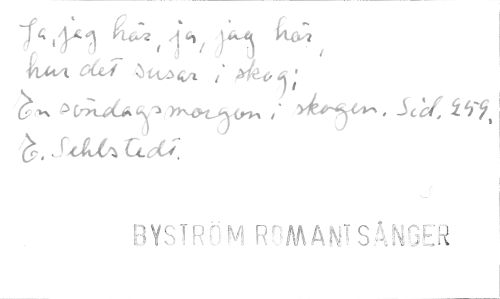 Ja, jag hör, ja, jag hör,
hur det susar i skog;
En söndagsmorgon i skogen. Sid. 259.
E. Sehlstedt.
BYSTRÖM ROMANT SÅNGER